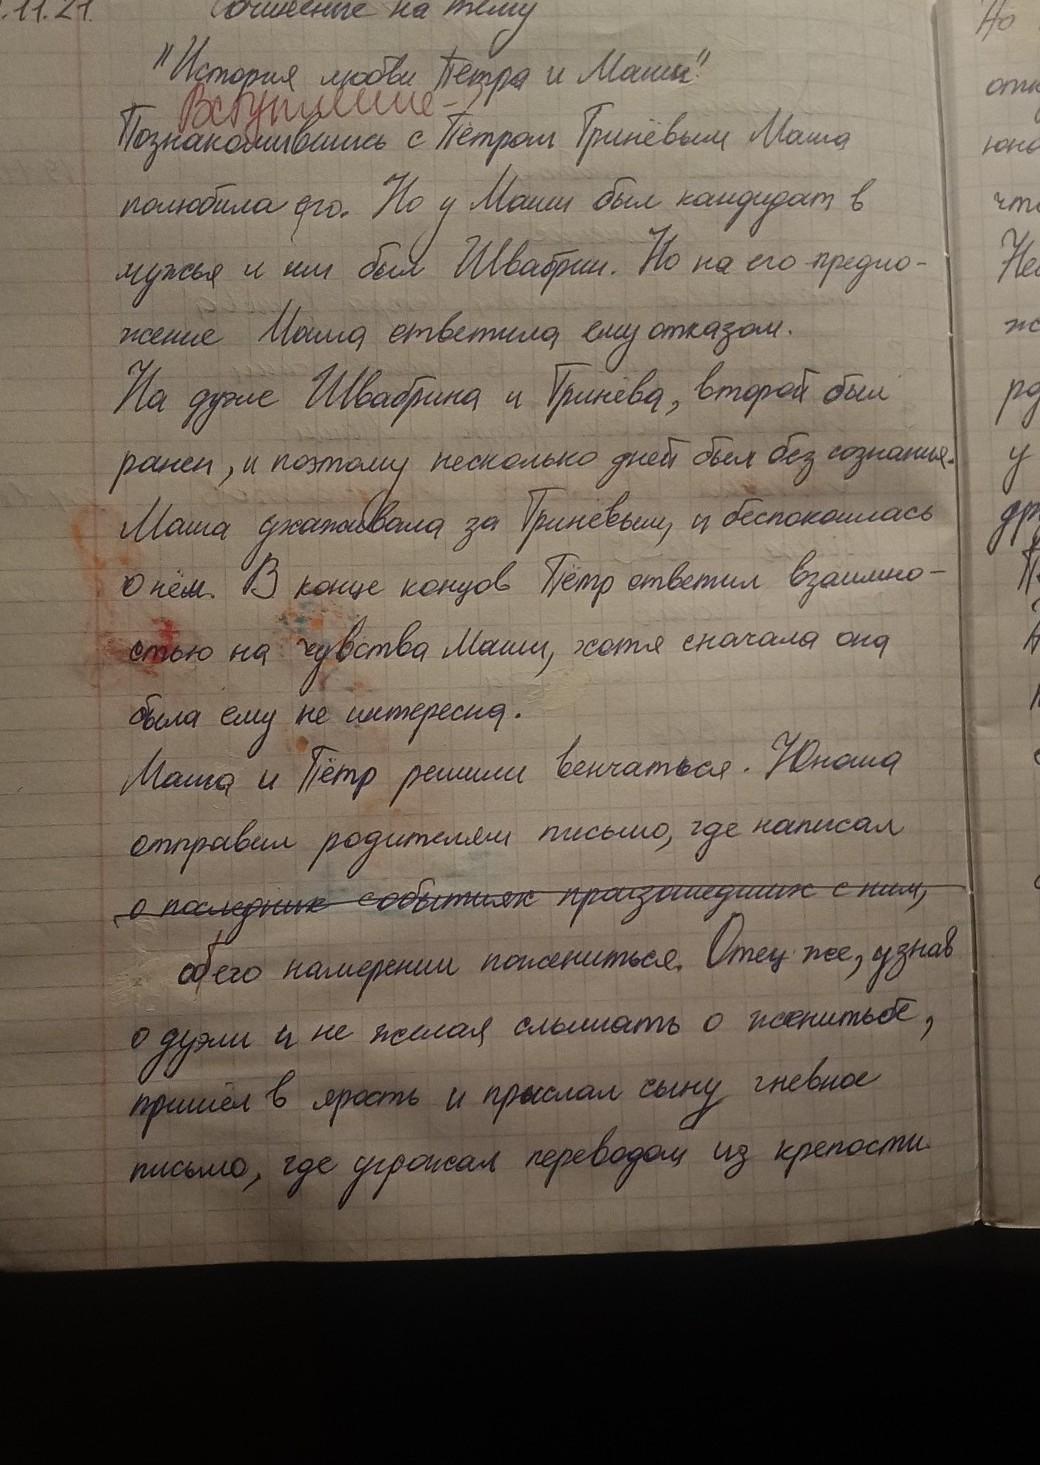 .11.21. Сочинение на тему
"История любви Петра и Маши"
Вступление-?
Познакомившись с Петром Гринёвым Маша
полюбила его. Но у Маши был кандидат в
мужья и им был Швабрин. Но на его предло-
жение Маша ответила ему отказом.
На дуэле Швабрина и Гринёва, второй был
ранен, и поэтому несколько дней был без сознания.
Маша ухаживала за Гринёвым, и беспокоилась
о нём. В конце концов Пётр ответил взаимно-
стью на чувства Маши, хотя сначала она
была ему не интересна.
Маша и Пётр решили венчаться. Юноша
отправил родителям письмо, где написал
о последних событиях произошедших с ним,
о его намерении пожениться. Отец же, узнав
о дуэли и не желая слышать о женитьбе,
пришёл в ярость и прислал сыну гневное
письмо, где угрожал переводом из крепости
Но
отк
юно
что
Не
же
ро
у
др